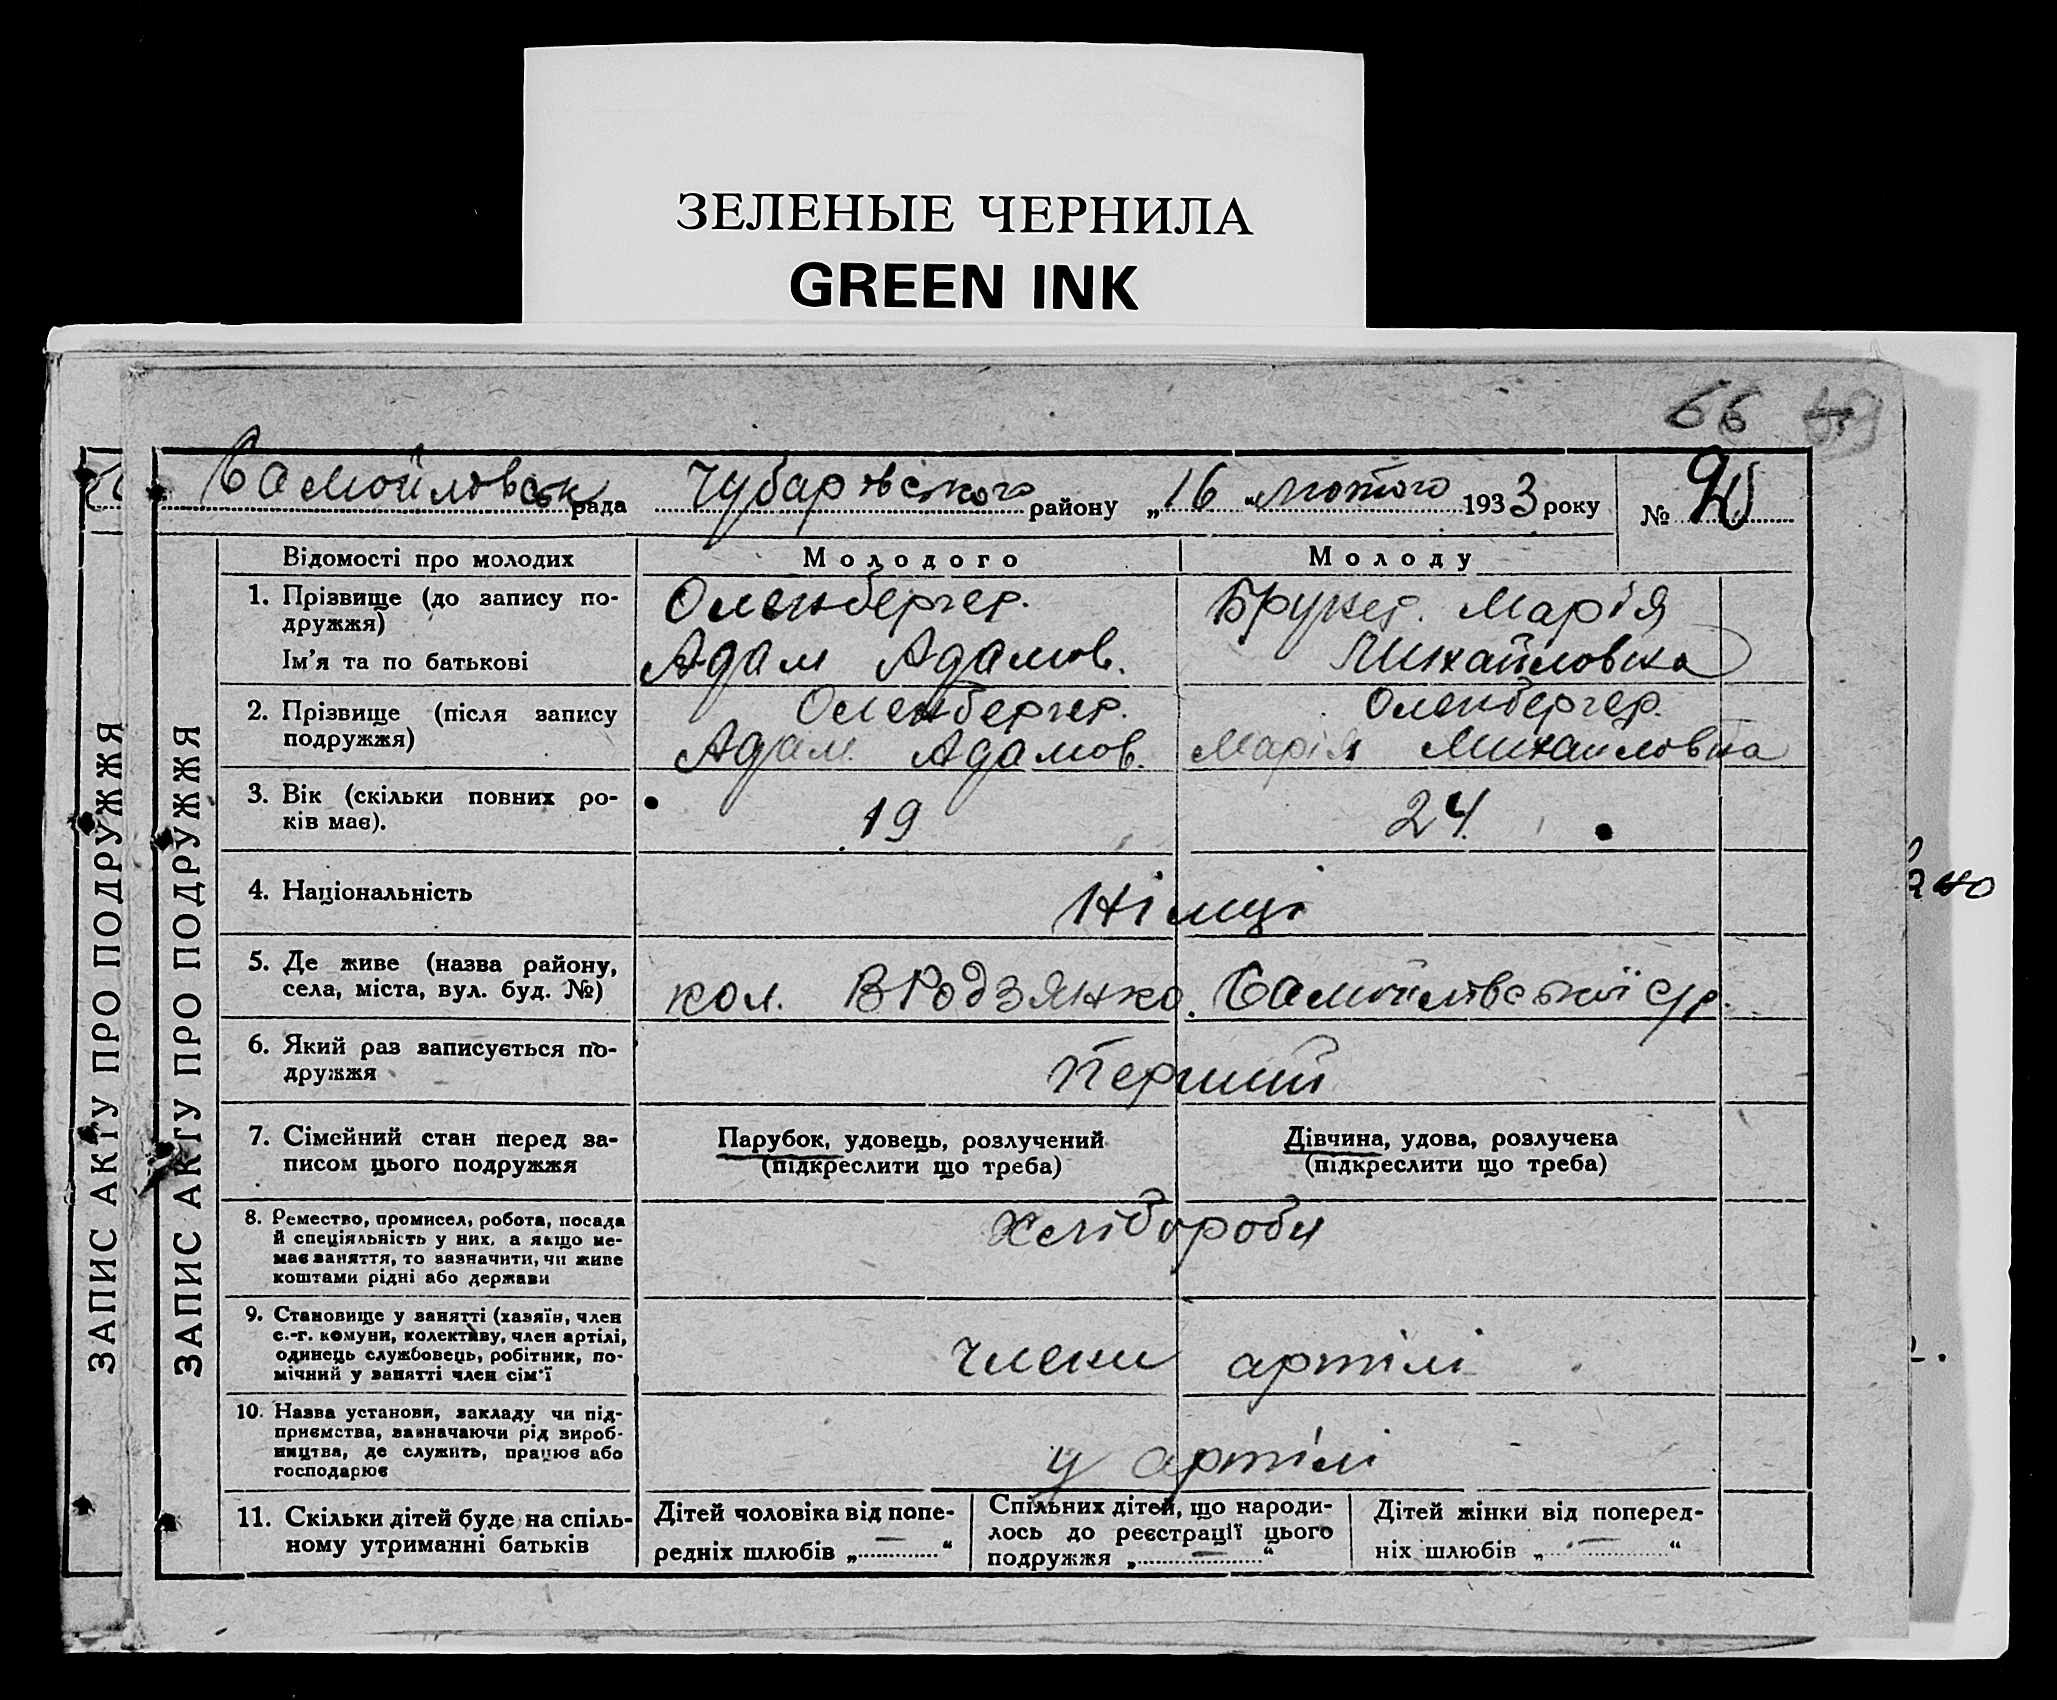 ЗЕЛЕНЫЕ ЧЕРНИЛА
GREEN INK
66
Самойловськ рада Чубарівського району „16“ лютого 1933 року №
Відомості про молодих
Молодого
Молоду
1. Прізвище (до запису по-
дружжя)
Ім'я та по батькові
Оленбергер.
Адам Адамов.
Брукер. Марія
Михайловна
2. Прізвище (після запису
подружжя)
Оленбергер.
Адам Адамов.
Оленбергер.
Марія Михайловна
3. Вік (скільки повних ро-
ків має).
19
24
4. Національність
Німці
5. Де живе (назва району,
села, міста, вул. буд. №)
кол. В Родзянко. Самойлівської с/р.
6. Який раз записується по-
дружжя
Перший
7. Сімейний стан перед за-
писом цього подружжя
Парубок, удовець, розлучений
(підкреслити що треба)
Дівчина, удова, розлучена
(підкреслити що треба)
8. Ремество, промисел, робота, посада
й спеціяльність у них, а якщо не-
має заняття, то зазначити, чи живе
коштами рідні або держави
Хлібороби
9. Становище у занятті (хазяїн, член
с.-г. комуни, колективу, член артілі,
одинець службовець, робітник, по-
мічний у занятті член сім'ї
Члени артілі
10. Назва установи, закладу чи під-
приємства, зазначаючи рід вироб-
ництва, де служить, працює або
господарює
у артілі
11. Скільки дітей буде на спіль-
ному утриманні батьків
Дітей чоловіка від попе-
редніх шлюбів „ — “
Спільних дітей, що народи-
лось до реєстрації цього
подружжя „ — “
Дітей жінки від поперед-
ніх шлюбів „ — “
ЗАПИС АКТУ ПРО ПОДРУЖЖЯ
ЗАПИС АКТУ ПРО ПОДРУЖЖЯ